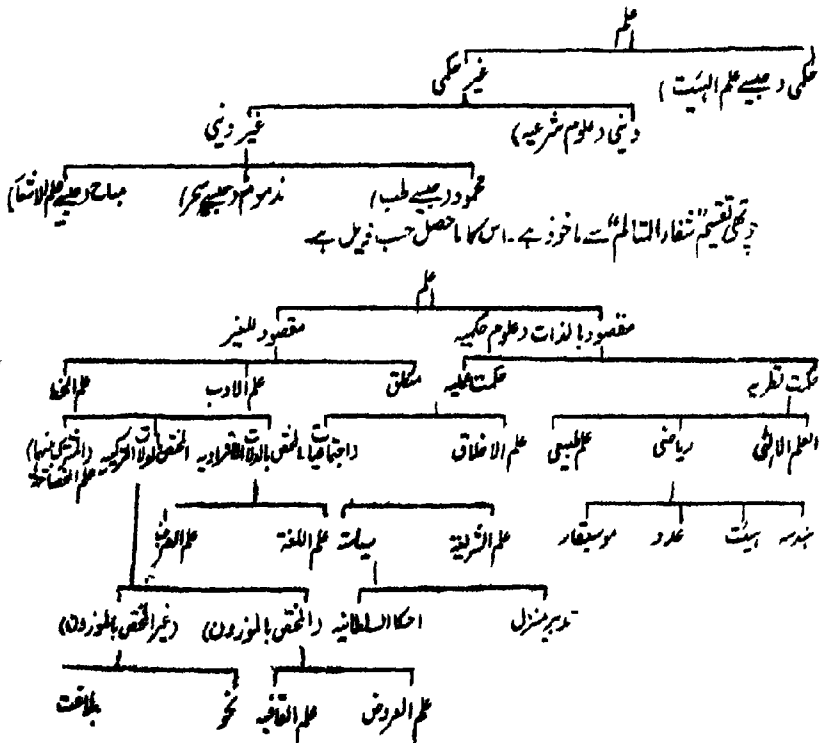 علم
حکمی (جیسے علم الہیئت) غیر حکمی
دینی (علوم شرعیہ) غیر دینی
محمود (جیسے طب) مذموم (جیسے سحر) مباح (جیسے علم الاشعار)
تقسیم "شفاء المتالم" سے ماخوذ ہے۔ اس کا ماحصل حسب ذیل ہے
علم
مقصود بالذات (علوم حکمیہ) مقصود للغیر
حکمت نظریہ حکمت عملیہ منطق علم الادب علم الخط
العلم الالٰہی ریاضی علم طبیعی علم الاخلاق (اجتماعیات) المختص بالدلالات الافرادیہ المختص بالدلالات الترکیبیہ
علم الفصاحة
ہندسہ ہیئت عدد موسیقار علم الشریعۃ سیاست علم اللغۃ علم الصرف
تدبیر منزل احکام السلطانیہ (المختص بالموزون) (غیر المختص بالموزون)
علم العروض علم القافیہ نحو بلاغت